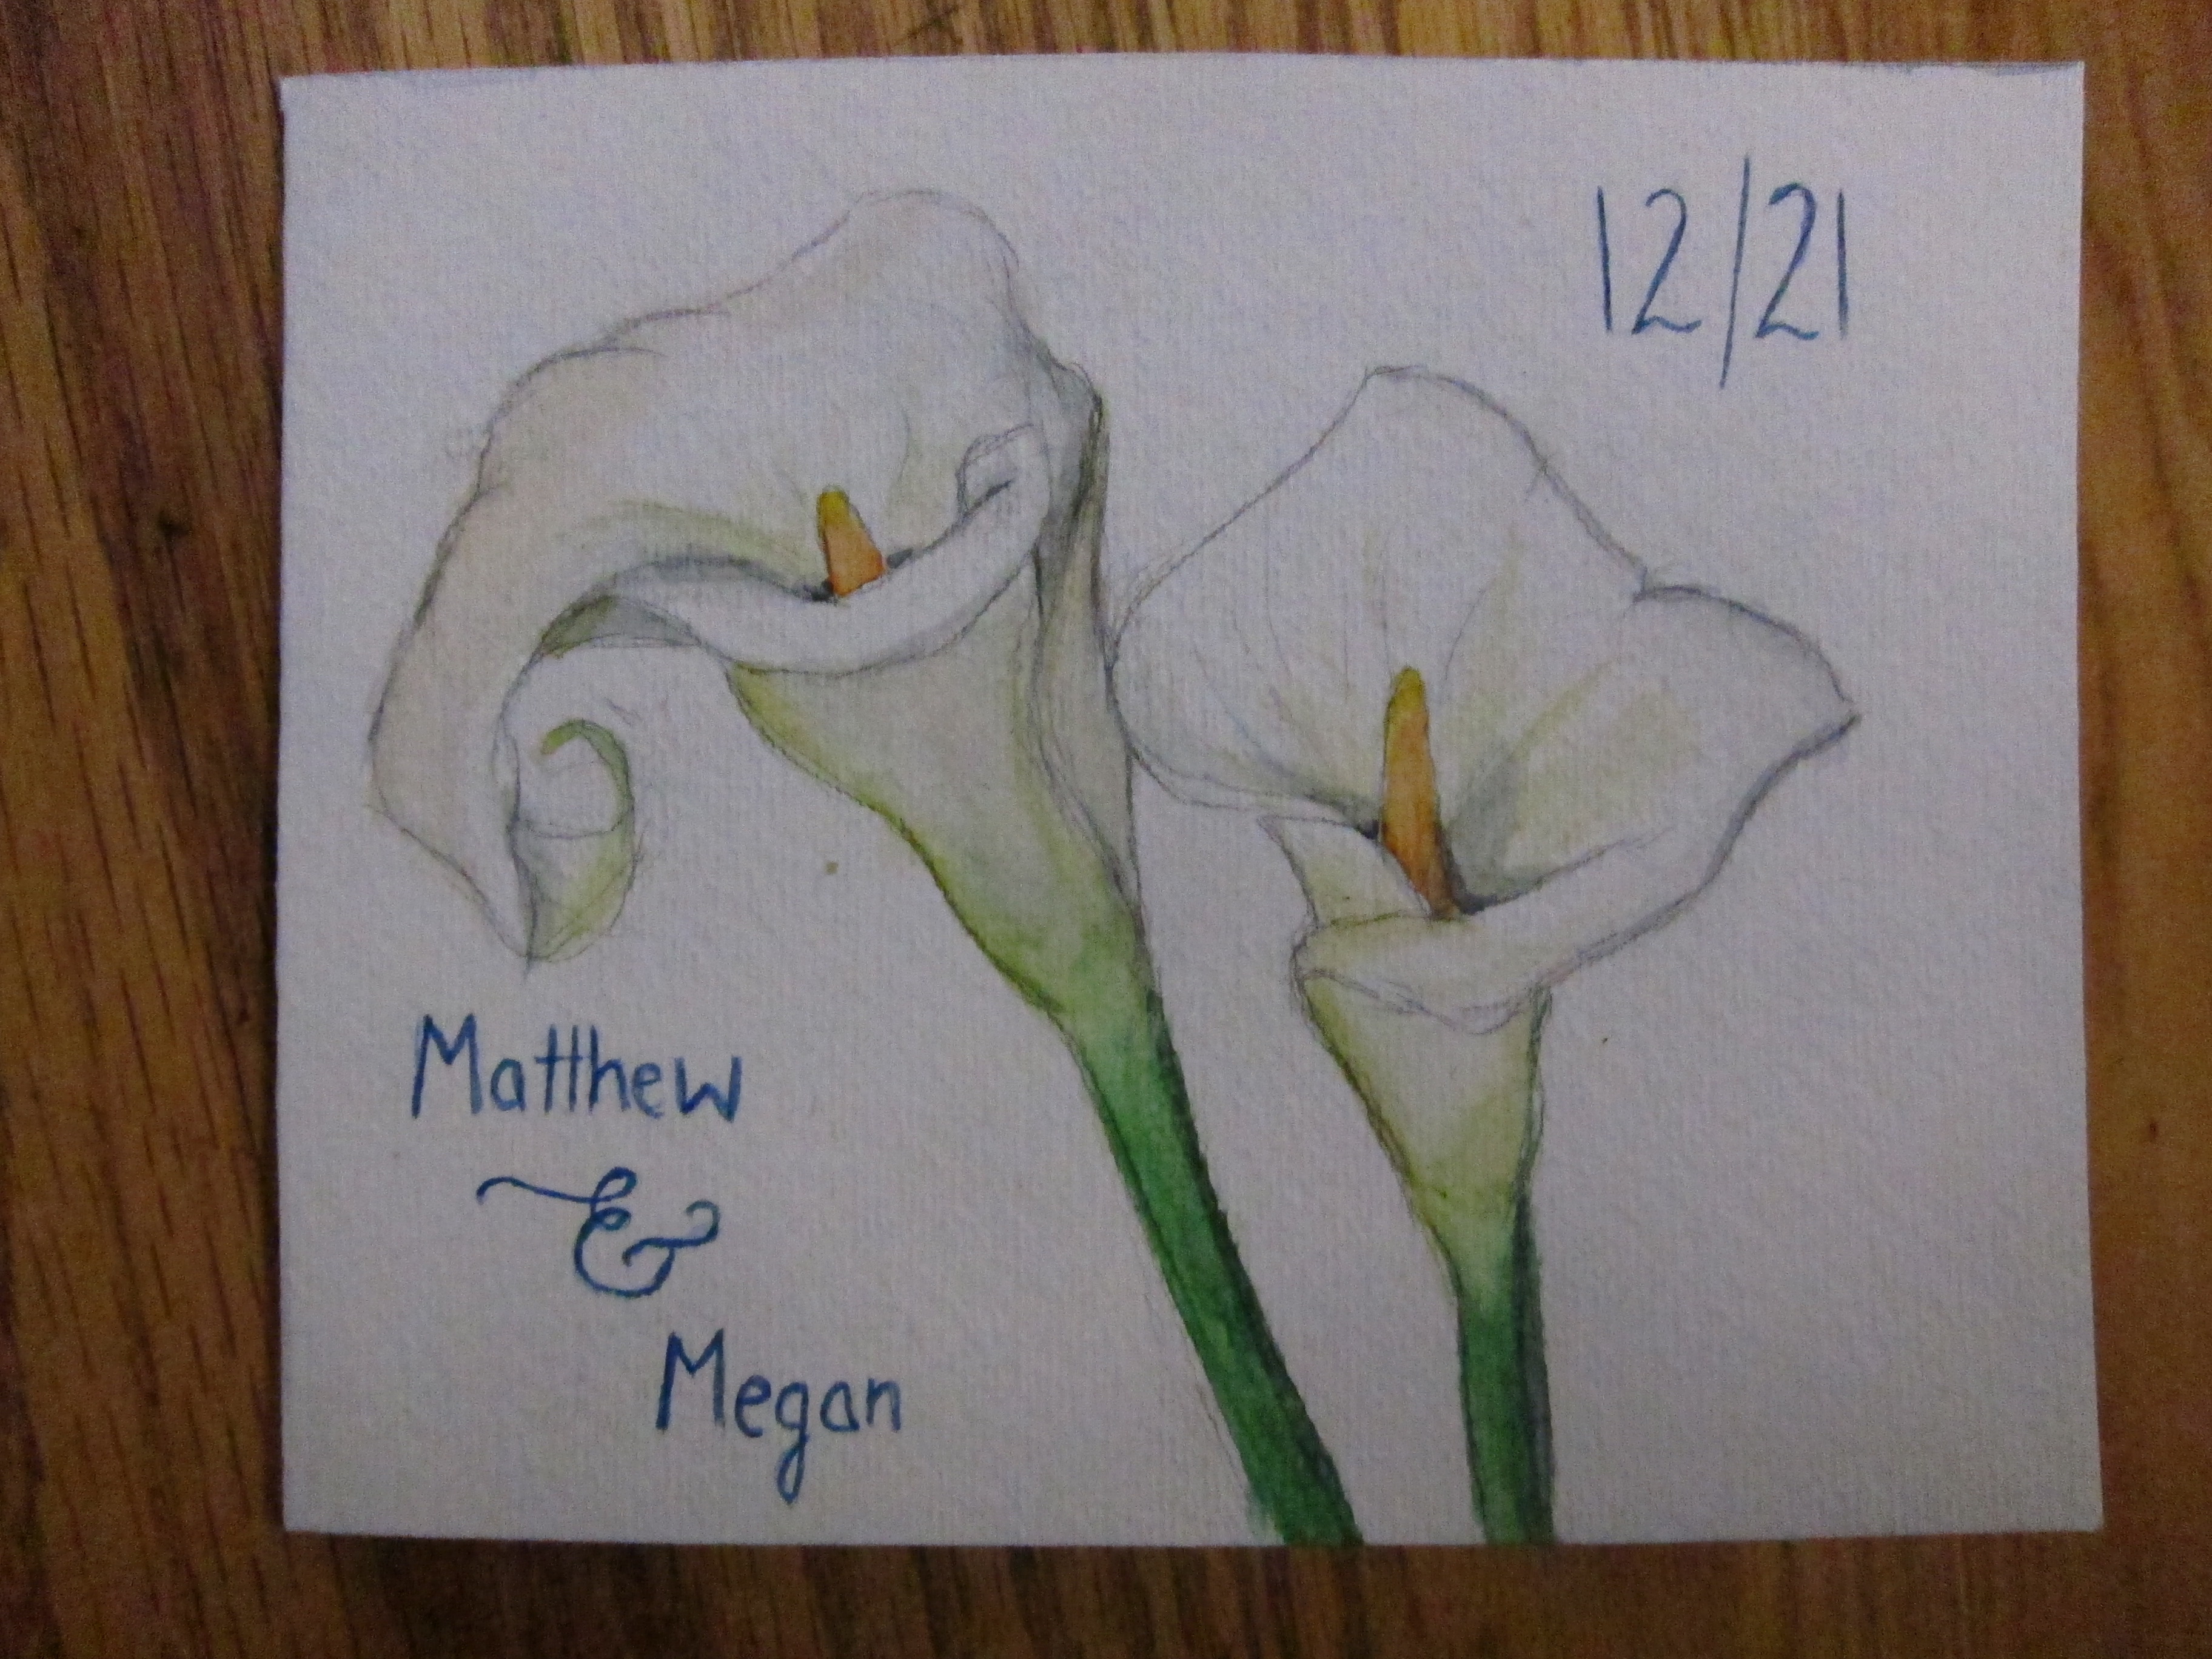 12/21
Matthew
&
Megan